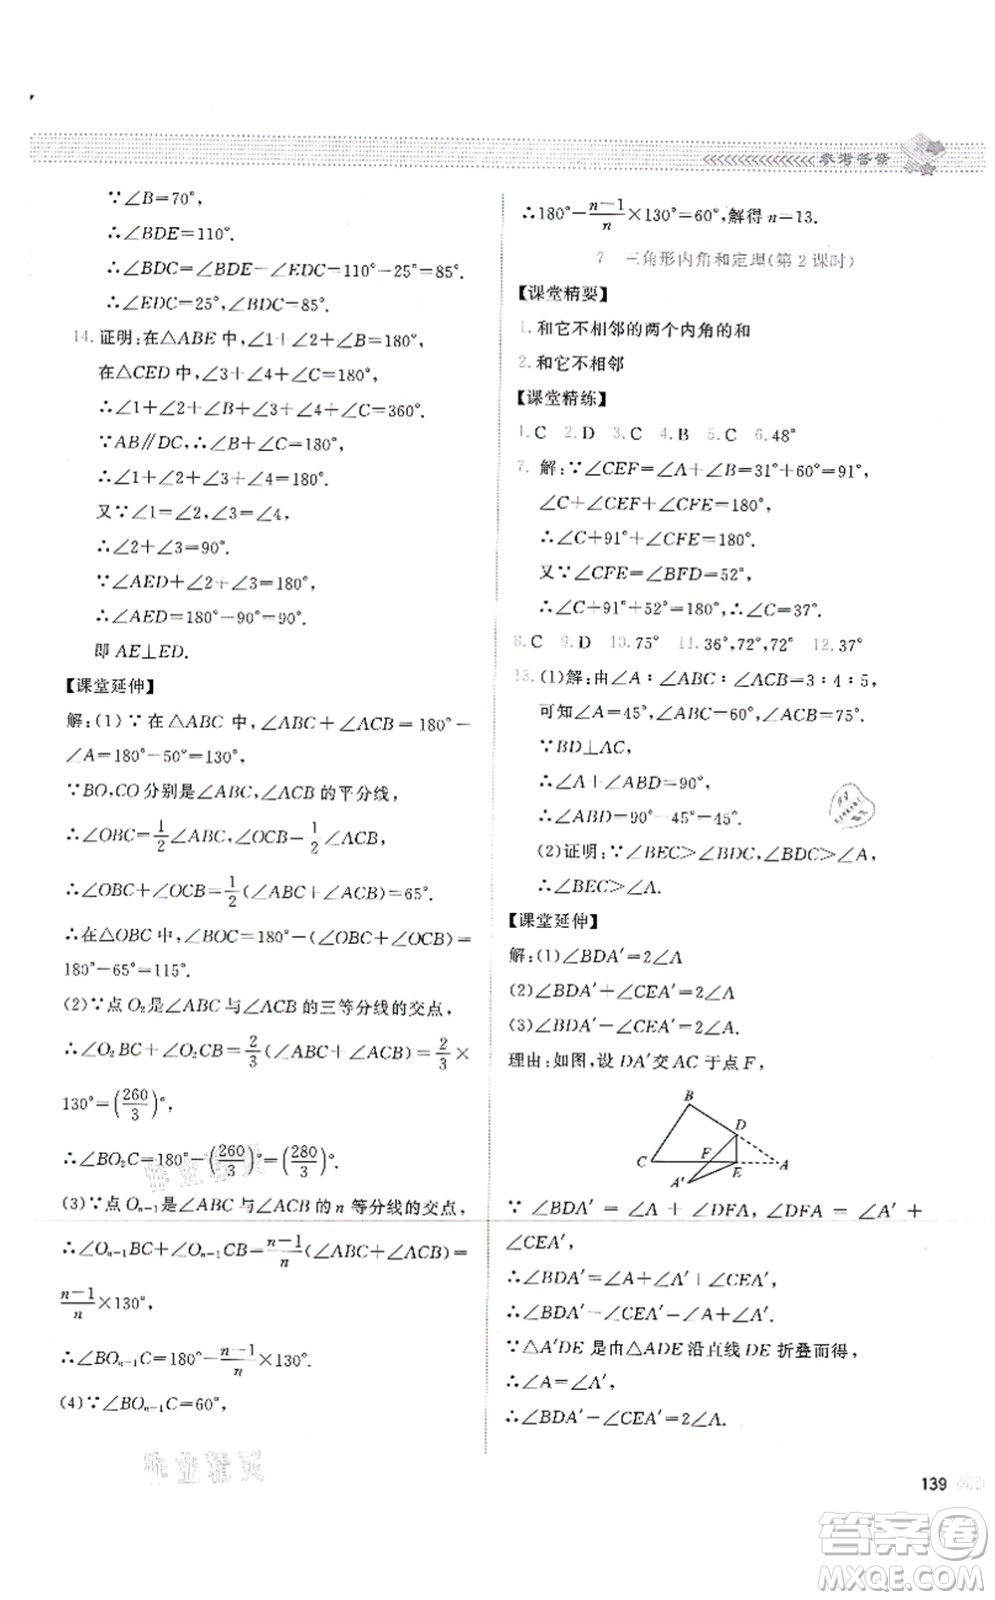 参考答案
∵∠B=70°,
∴∠BDE=110°.
∴∠BDC=∠BDE-∠EDC=110°-25°=85°.
∴∠EDC=25°,∠BDC=85°.
14. 证明:在△ABE中,∠1+∠2+∠B=180°,
在△CED中,∠3+∠4+∠C=180°,
∴∠1+∠2+∠B+∠3+∠4+∠C=360°.
∵AB∥DC,∴∠B+∠C=180°,
∴∠1+∠2+∠3+∠4=180°.
又∵∠1=∠2,∠3=∠4,
∴∠2+∠3=90°.
∵∠AED+∠2+∠3=180°,
∴∠AED=180°-90°=90°.
即 AE⊥ED.
【课堂延伸】
解:(1)∵在△ABC中,∠ABC+∠ACB=180°-
∠A=180°-50°=130°,
∵BO,CO分别是∠ABC,∠ACB的平分线,
∴∠OBC=1/2∠ABC,∠OCB=1/2∠ACB,
∴∠OBC+∠OCB=1/2(∠ABC+∠ACB)=65°.
∴在△OBC中,∠BOC=180°-(∠OBC+∠OCB)=
180°-65°=115°.
(2)∵点O₂是∠ABC与∠ACB的三等分线的交点,
∴∠O₂BC+∠O₂CB=2/3(∠ABC+∠ACB)=2/3×
130°=(260/3)°,
∴∠BO₂C=180°-(260/3)°=(280/3)°.
(3)∵点Oₙ₋₁是∠ABC与∠ACB的n等分线的交点,
∴∠Oₙ₋₁BC+∠Oₙ₋₁CB=(n-1)/n(∠ABC+∠ACB)=
(n-1)/n×130°,
∴∠BOₙ₋₁C=180°-(n-1)/n×130°.
(4)∵∠BOₙ₋₁C=60°,
作业精灵
∴180°-(n-1)/n×130°=60°,解得n=13.
7 三角形内角和定理(第2课时)
【课堂精要】
1. 和它不相邻的两个内角的和
2. 和它不相邻
【课堂精练】
1. C 2. D 3. C 4. B 5. C 6. 48°
7. 解:∵∠CEF=∠A+∠B=31°+60°=91°,
∠C+∠CEF+∠CFE=180°,
∴∠C+91°+∠CFE=180°.
又∵∠CFE=∠BFD=52°,
∴∠C+91°+52°=180°,∴∠C=37°.
8. C 9. D 10. 75° 11. 36°,72°,72° 12. 37°
13. (1)解:由∠A∶∠ABC∶∠ACB=3∶4∶5,
可知∠A=45°,∠ABC=60°,∠ACB=75°.
∵BD⊥AC,
∴∠A+∠ABD=90°,
∴∠ABD=90°-45°=45°.
(2)证明:∵∠BEC>∠BDC,∠BDC>∠A,
∴∠BEC>∠A.
【课堂延伸】
解:(1)∠BDA′=2∠A
(2)∠BDA′+∠CEA′=2∠A
(3)∠BDA′-∠CEA′=2∠A.
理由:如图,设DA′交AC于点F,
B
D
F
C
E
A
A′
∵∠BDA′=∠A+∠DFA,∠DFA=∠A′+
∠CEA′,
∴∠BDA′=∠A+∠A′+∠CEA′.
∴∠BDA′-∠CEA′=∠A+∠A′.
∵△A′DE是由△ADE沿直线DE折叠而得,
∴∠A=∠A′,
∴∠BDA′-∠CEA′=2∠A.
139
答案卷
MXQE.COM